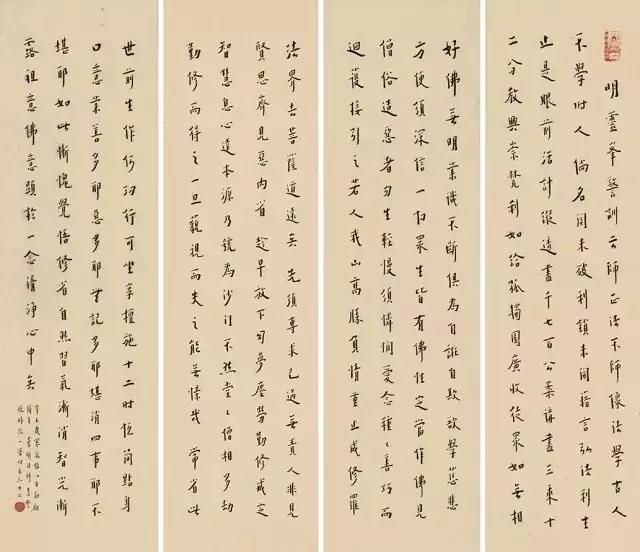 明靈峯警訓云師正法不師像法學古人
不學時人倘名關未破利鎖未開藉言弘法利生
止是眼前活計縱透盡千七百公案講盡三乘十
二分教興崇梵刹如給孤獨園廣收徒眾如無相
好佛無明業識不斷俱為自誑自欺欲學慈悲
方便須深信一切眾生皆有佛性定當作佛見
僧俗造惡者勿生輕慢須憐憫愛念種種善巧而
迴護接引之若人我山高勝負情重止成修羅
法界去菩薩道遠矣先須專求己過毋責人非見
賢思齊見惡內省趁早放下幻夢塵勞勤修戒定
智慧息心達本源乃號為沙門不然堂堂僧相多劫
勤修而得之一旦藐視而失之能無悚哉常省此
世前生作何功行可坐享檀施十二時簡點身
口意業善多耶惡多耶無記多耶堪消四事耶不
堪耶如此慚愧覺悟修省自然習氣漸消智光漸
露祖意佛意顯於一念清淨心中矣